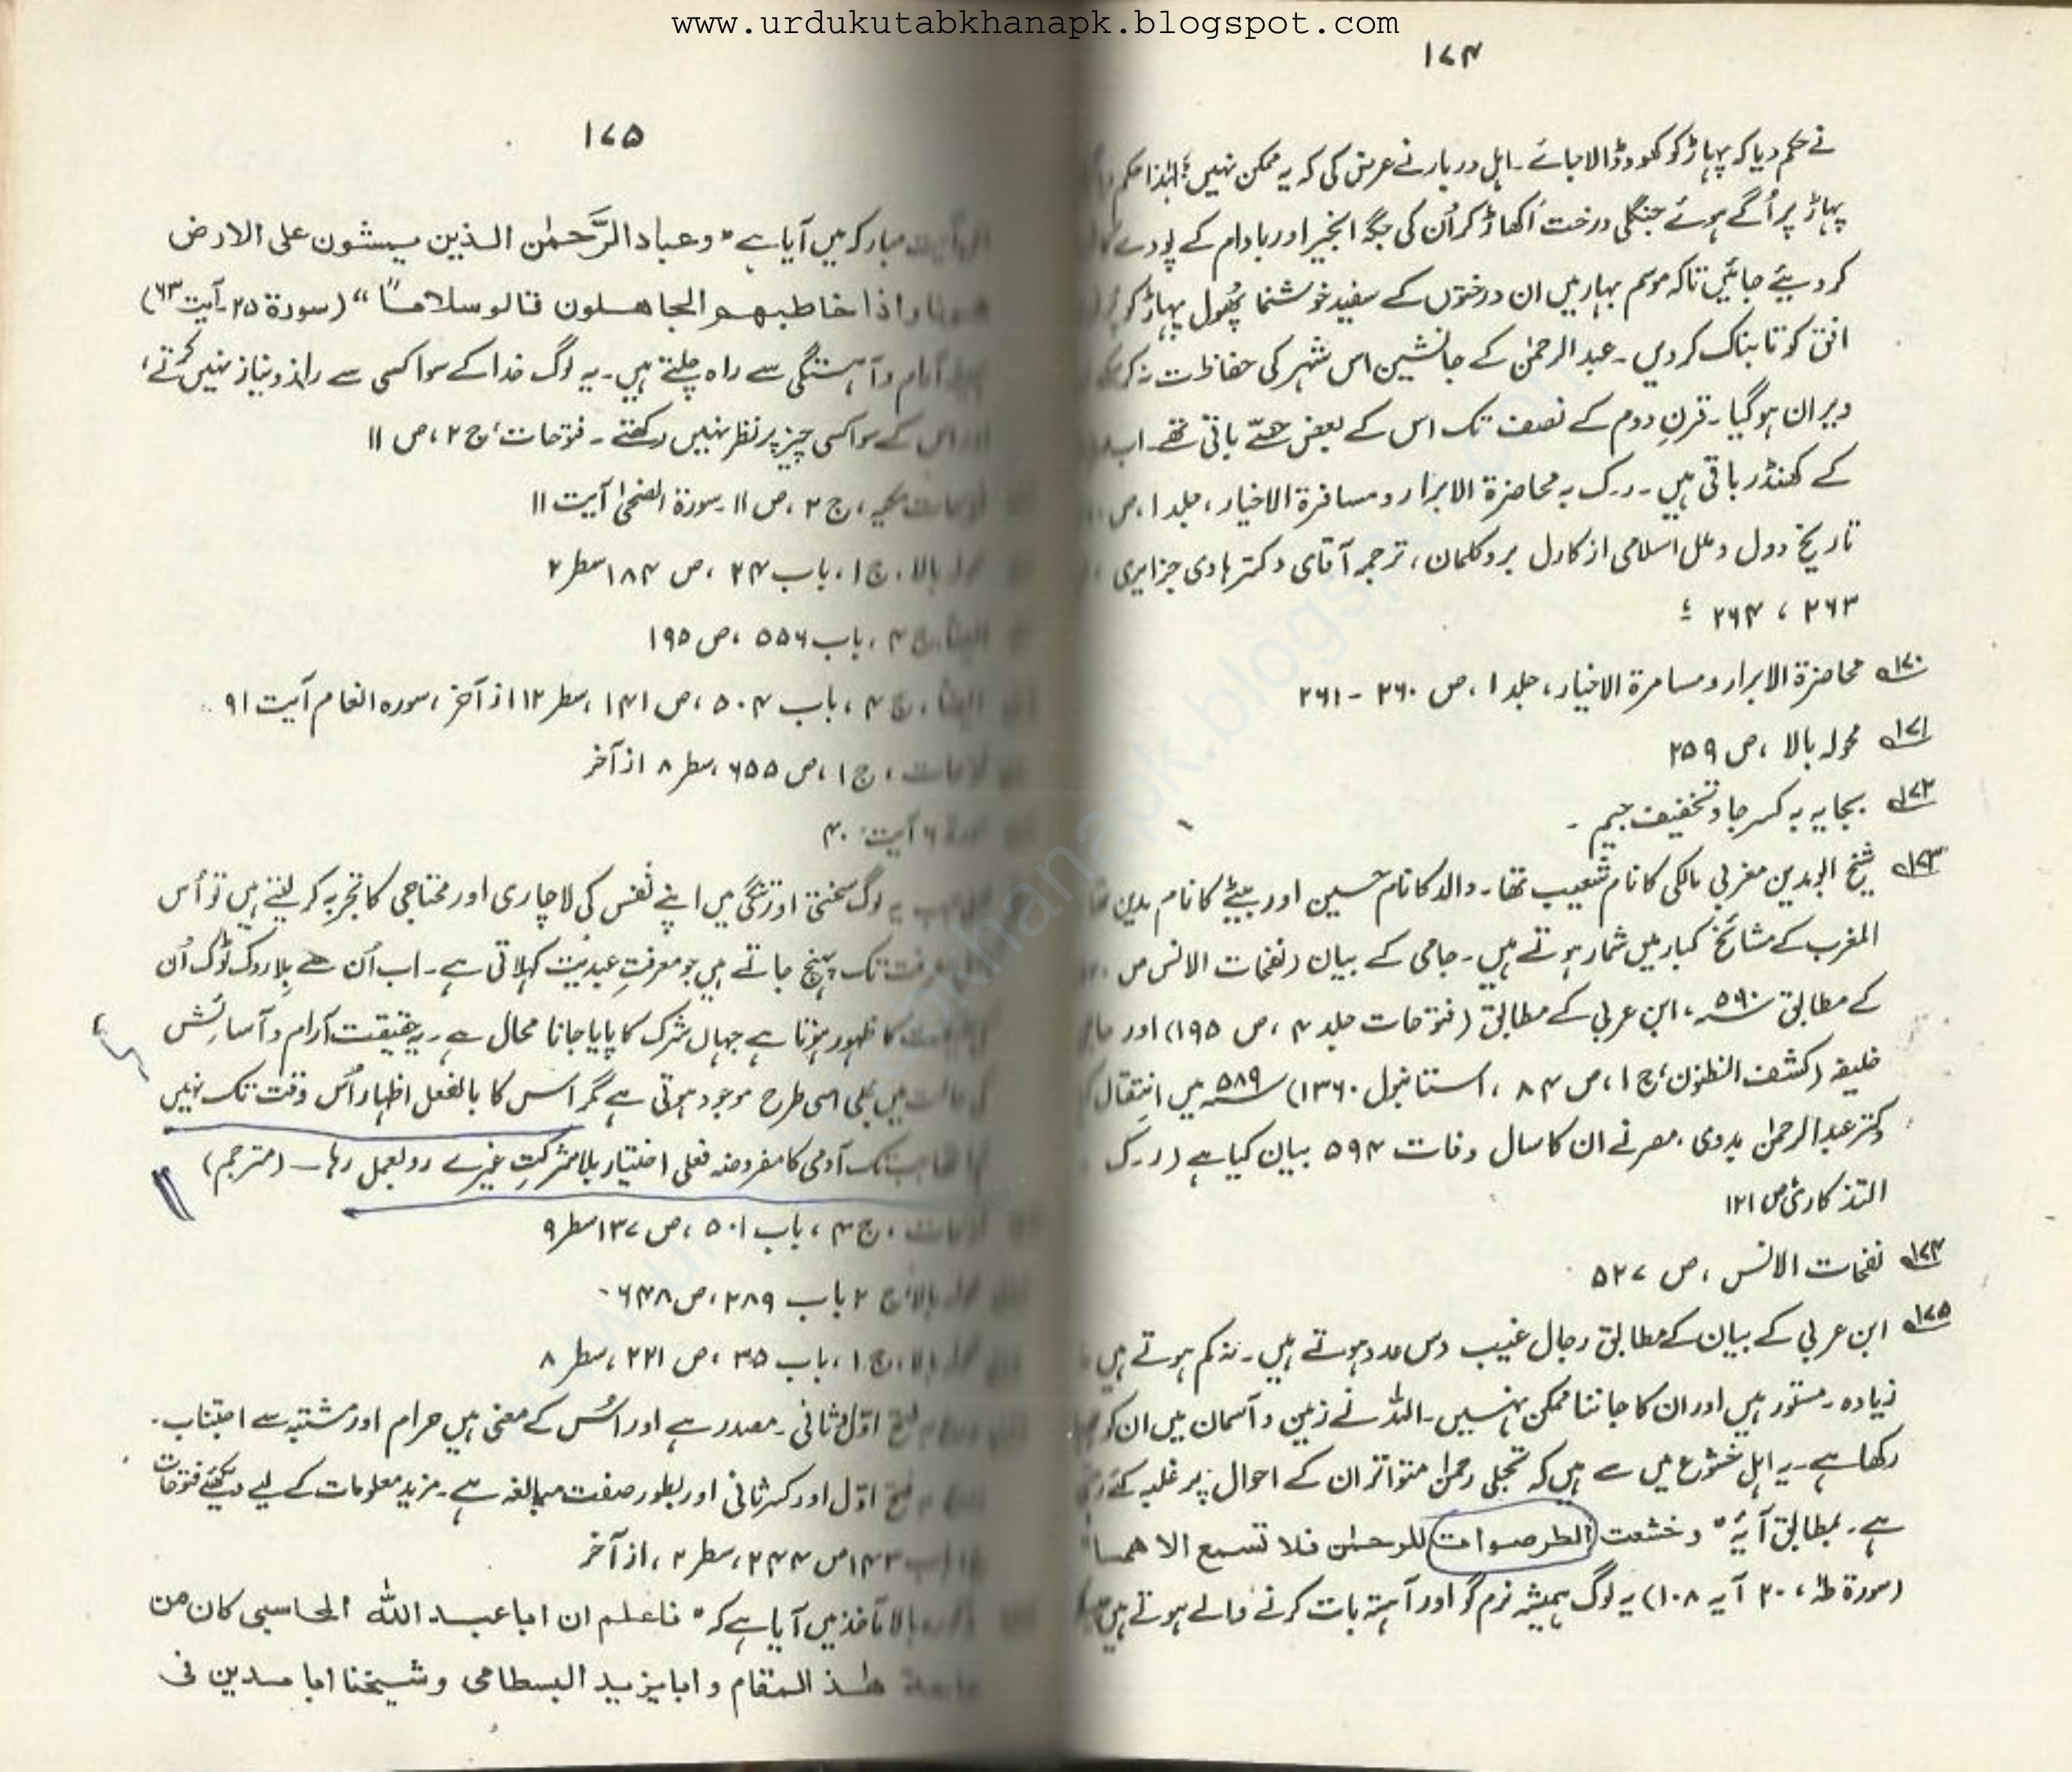 www.urdukutabkhanapk.blogspot.com
۱۷۴
نے حکم دیا کہ پہاڑ کو کھود ڈالا جائے۔ اہل دربار نے عرض کی کہ یہ ممکن نہیں؛ لہٰذا حکم
پہاڑ پر اُگے ہوئے جنگلی درخت اُکھاڑ کر اُن کی جگہ انجیر اور بادام کے پودے
کر دیئے جائیں تاکہ موسم بہار میں ان درختوں کے سفید خوشنما پھُول پہاڑ کو
افق کو تابناک کر دیں۔ عبد الرحمٰن کے جانشین اس شہر کی حفاظت نہ کر سکے
ویران ہو گیا۔ قرنِ دوم کے نصف تک اس کے بعض حصّے باقی تھے۔ اب
کے کھنڈر باقی ہیں۔ ر۔ک بہ محاضرۃ الابرار و مسافرۃ الاخیار، جلد ۱، ص
تاریخ دول و ملل اسلامی از کارل بروکلمان، ترجمہ آقای دکتر ہادی جزایری
۲۶۳ ، ۲۶۴
۱۷۰؎ محاضرۃ الابرار و مسامرۃ الاخیار، جلد ۱، ص ۲۶۰ - ۲۶۱
۱۷۱؎ محولہ بالا، ص ۲۵۹
۱۷۲؎ بجایہ بہ کسر جا و تخفیف جیم۔
۱۷۳؎ شیخ ابو مدین مغربی مالکی کا نام شعیب تھا۔ والد کا نام حسین اور بیٹے کا نام مدین تھا
المغرب کے مشائخ کبار میں شمار ہوتے ہیں۔ جامی کے بیان (نفحات الانس ص
کے مطابق ۵۹۰ھ، ابن عربی کے مطابق (فتوحات جلد ۴، ص ۱۹۵) اور حاجی
خلیفہ (کشف الظنون، ج ۱، ص ۸۴، استانبول ۱۳۶۰) ۵۸۹ھ میں انتقال
دکتر عبد الرحمٰن بدوی، مصر نے ان کا سال وفات ۵۹۴ بیان کیا ہے (ر۔ک
التذکاری ص ۱۲۱
۱۷۴؎ نفحات الانس، ص ۵۲۷
۱۷۵؎ ابن عربی کے بیان کے مطابق رجال غیب دس عدد ہوتے ہیں۔ نہ کم ہوتے ہیں
زیادہ۔ مستور ہیں اور ان کا جاننا ممکن نہیں۔ اللہ نے زمین و آسمان میں ان کو
رکھا ہے۔ یہ اہل خشوع میں سے ہیں کہ تجلی رحمٰن متواتر ان کے احوال پر غلبہ کئے
ہے۔ بمطابق آیۂ " وخشعت الطرصوات للرحمٰن فلا تسمع الا همسا"
(سورۃ طٰہٰ، ۲۰ آیہ ۱۰۸) یہ لوگ ہمیشہ نرم گو اور آہستہ بات کرنے والے ہوتے ہیں
۱۷۵
آیت مبارکہ میں آیا ہے "وعباد الرَّحمٰن الذین یمشون علی الارض
هونا واذا خاطبهم الجاهلون قالو سلاماً" (سورۃ ۲۵۔ آیت ۶۳)
آرام و آہستگی سے راہ چلتے ہیں۔ یہ لوگ خدا کے سوا کسی سے راز و نیاز نہیں کرتے،
اور اس کے سوا کسی چیز پر نظر نہیں رکھتے۔ فتوحات، ج ۲، ص ۱۱
فتوحات مکیہ، ج ۲، ص ۱۱۔ سورۃ الضحیٰ آیت ۱۱
محولہ بالا، ج ۱، باب ۲۴، ص ۱۸۴ سطر ۲
ایضاً، ج ۴، باب ۵۵۶، ص ۱۹۵
ایضاً، ج ۴، باب ۵۰۴، ص ۱۴۱، سطر ۱۲ از آخر، سورہ انعام آیت ۹۱
فتوحات، ج ۱، ص ۶۵۵، سطر ۸ از آخر
سورۃ ۶ آیت: ۴۰
جب یہ لوگ سختی اور تنگی میں اپنے نفس کی لاچاری اور محتاجی کا تجربہ کر لیتے ہیں تو اُس
معرفت تک پہنچ جاتے ہیں جو معرفتِ عبدیّت کہلاتی ہے۔ اب اُن سے بلا روک ٹوک اُن
کا ظہور ہوتا ہے جہاں شرک کا پایا جانا محال ہے۔ یہ حقیقت آرام و آسائش
کی حالت میں بھی اسی طرح موجود ہوتی ہے مگر اس کا بالفعل اظہار اُس وقت تک نہیں
تھا جب تک آدمی کا مفروضہ فعلی اختیار بلا شرکتِ غیرے رو بعمل رہا۔ (مترجم)
فتوحات، ج ۴، باب ۵۰۱، ص ۱۳۷ سطر ۹
محولہ بالا، ج ۲ باب ۲۸۹، ص ۶۴۸۔
محولہ بالا، ج ۱، باب ۳۵، ص ۲۲۱، سطر ۸
بہ فتح اوّل و ثانی۔ مصدر ہے اور اُس کے معنی ہیں حرام اور مشتبہ سے اجتناب۔
بہ فتح اوّل اور کسر ثانی اور بطور صفت مبالغہ ہے۔ مزید معلومات کے لیے دیکھئے فتوحات
باب ۱۴۳ ص ۲۴۴، سطر ۲، از آخر
مذکورہ بالا مآخذ میں آیا ہے کہ "فاعلم ان اباعبد اللہ المحاسبی کان من
هٰذ المقام و ابایزید البسطامی و شیخنا ابا مدین فی